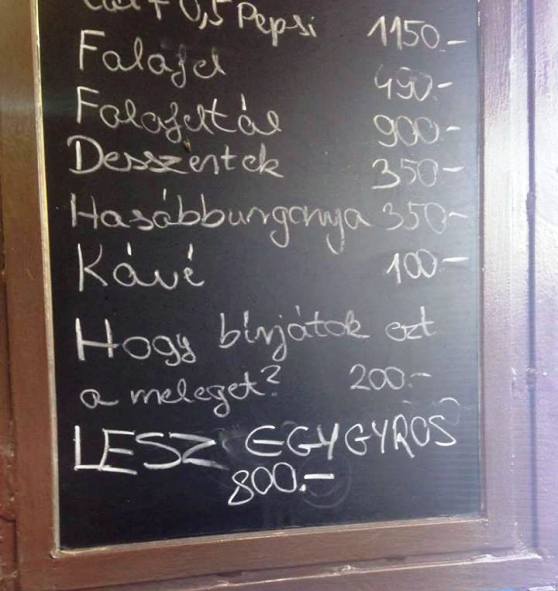 + 0,5 Pepsi 1150.-
Falafel 490.-
Falafeltál 900-
Desszertek 350-
Hasábburgonya 350-
Kávé 100-
Hogy bírjátok ezt
a meleget? 200.-
LESZ EGY GYROS
800.-